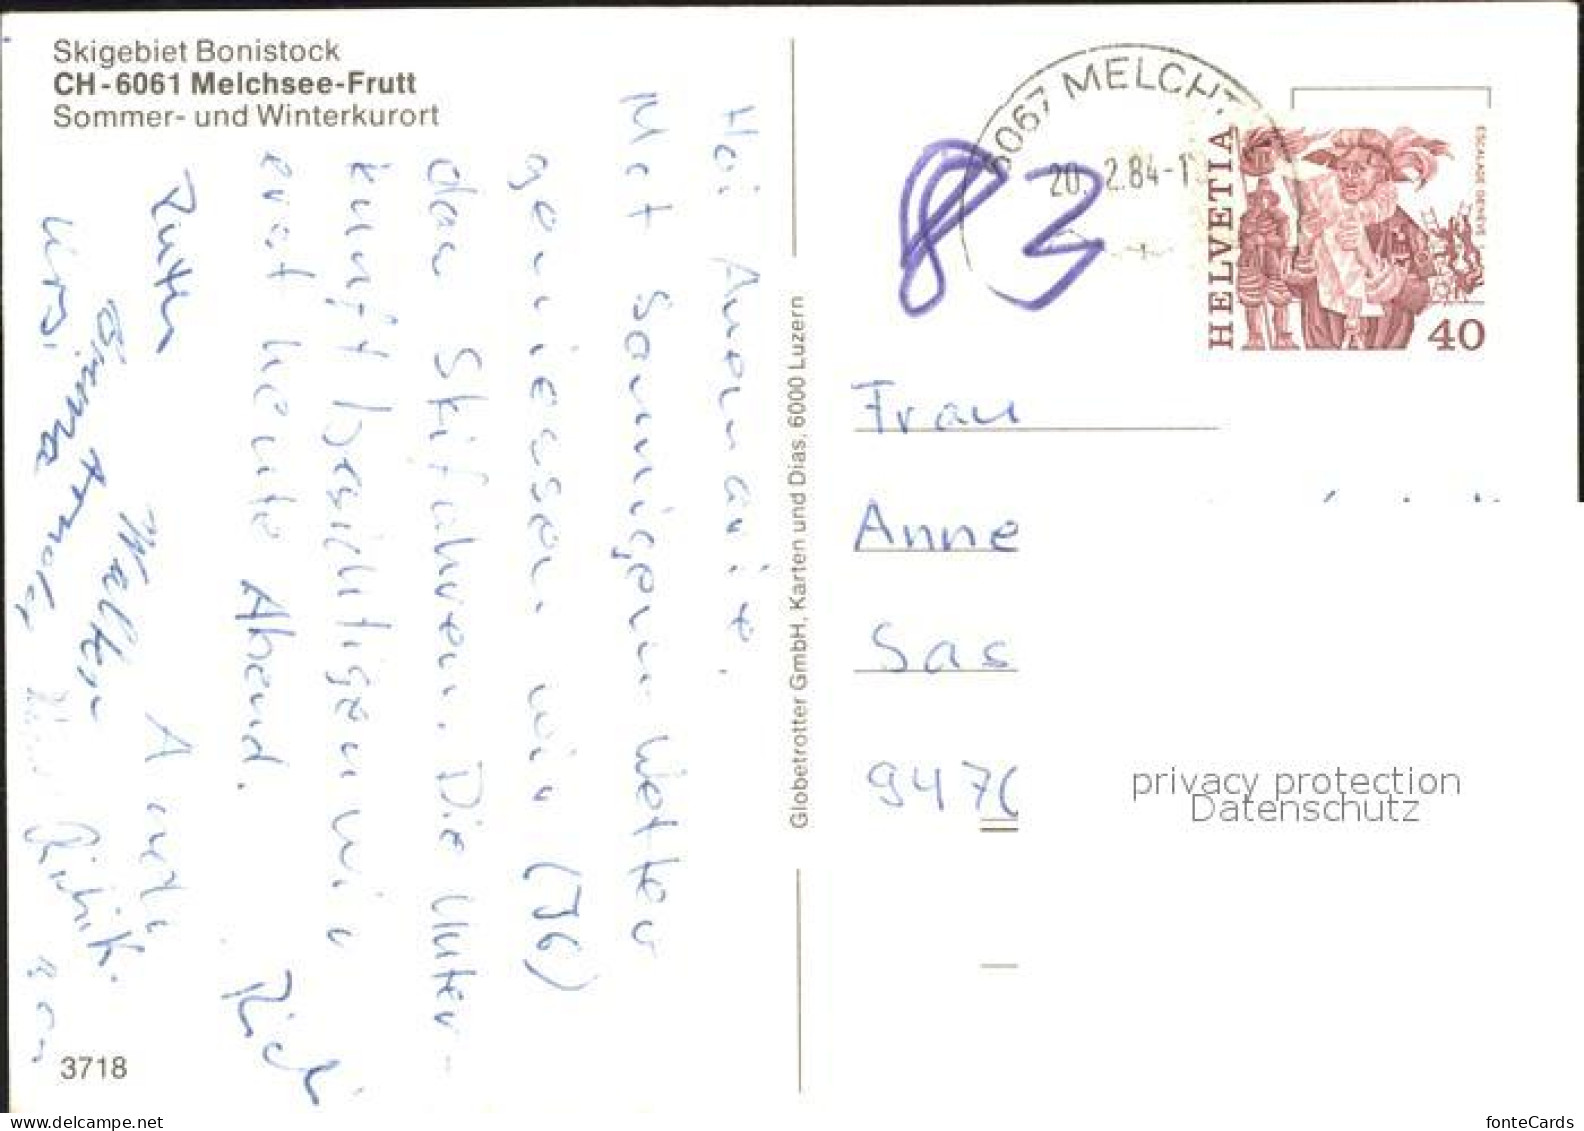 Skigebiet Bonistock
CH-6061 Melchsee-Frutt
Sommer- und Winterkurort
Hoi Annemarie.
Met Sonnigem Wetter
geniessen wir (J6)
das Skifahren. Die Unter-
kunft besichtigen wir
erst heute Abend.
Richi
Ruth
Ursi
Walker
3718
Globetrotter GmbH, Karten und Dias, 6000 Luzern
6067 MELCHT
20. 2.84-1
83
HELVETIA
ESCALADE GENEVE
40
Frau
Anne
Sas
947
privacy protection
Datenschutz
www.delcampe.net
fonteCards